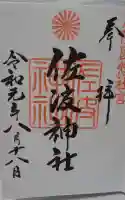 奉拝
佐波神社
令和元年八月十八日